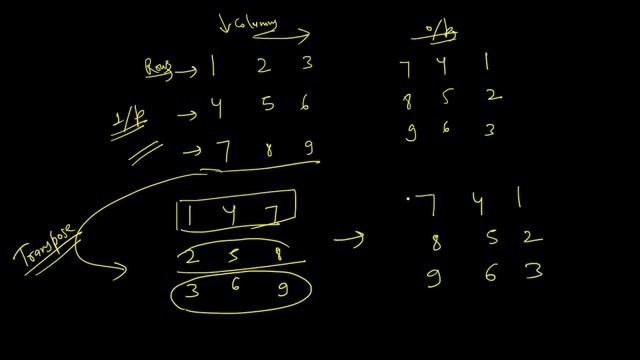 ↓ Columns →
o/p
Rows → 1 2 3
7 4 1
I/p → 4 5 6
8 5 2
→ 7 8 9
9 6 3
Transpose
1 4 7
2 5 8 →
3 6 9
7 4 1
8 5 2
9 6 3